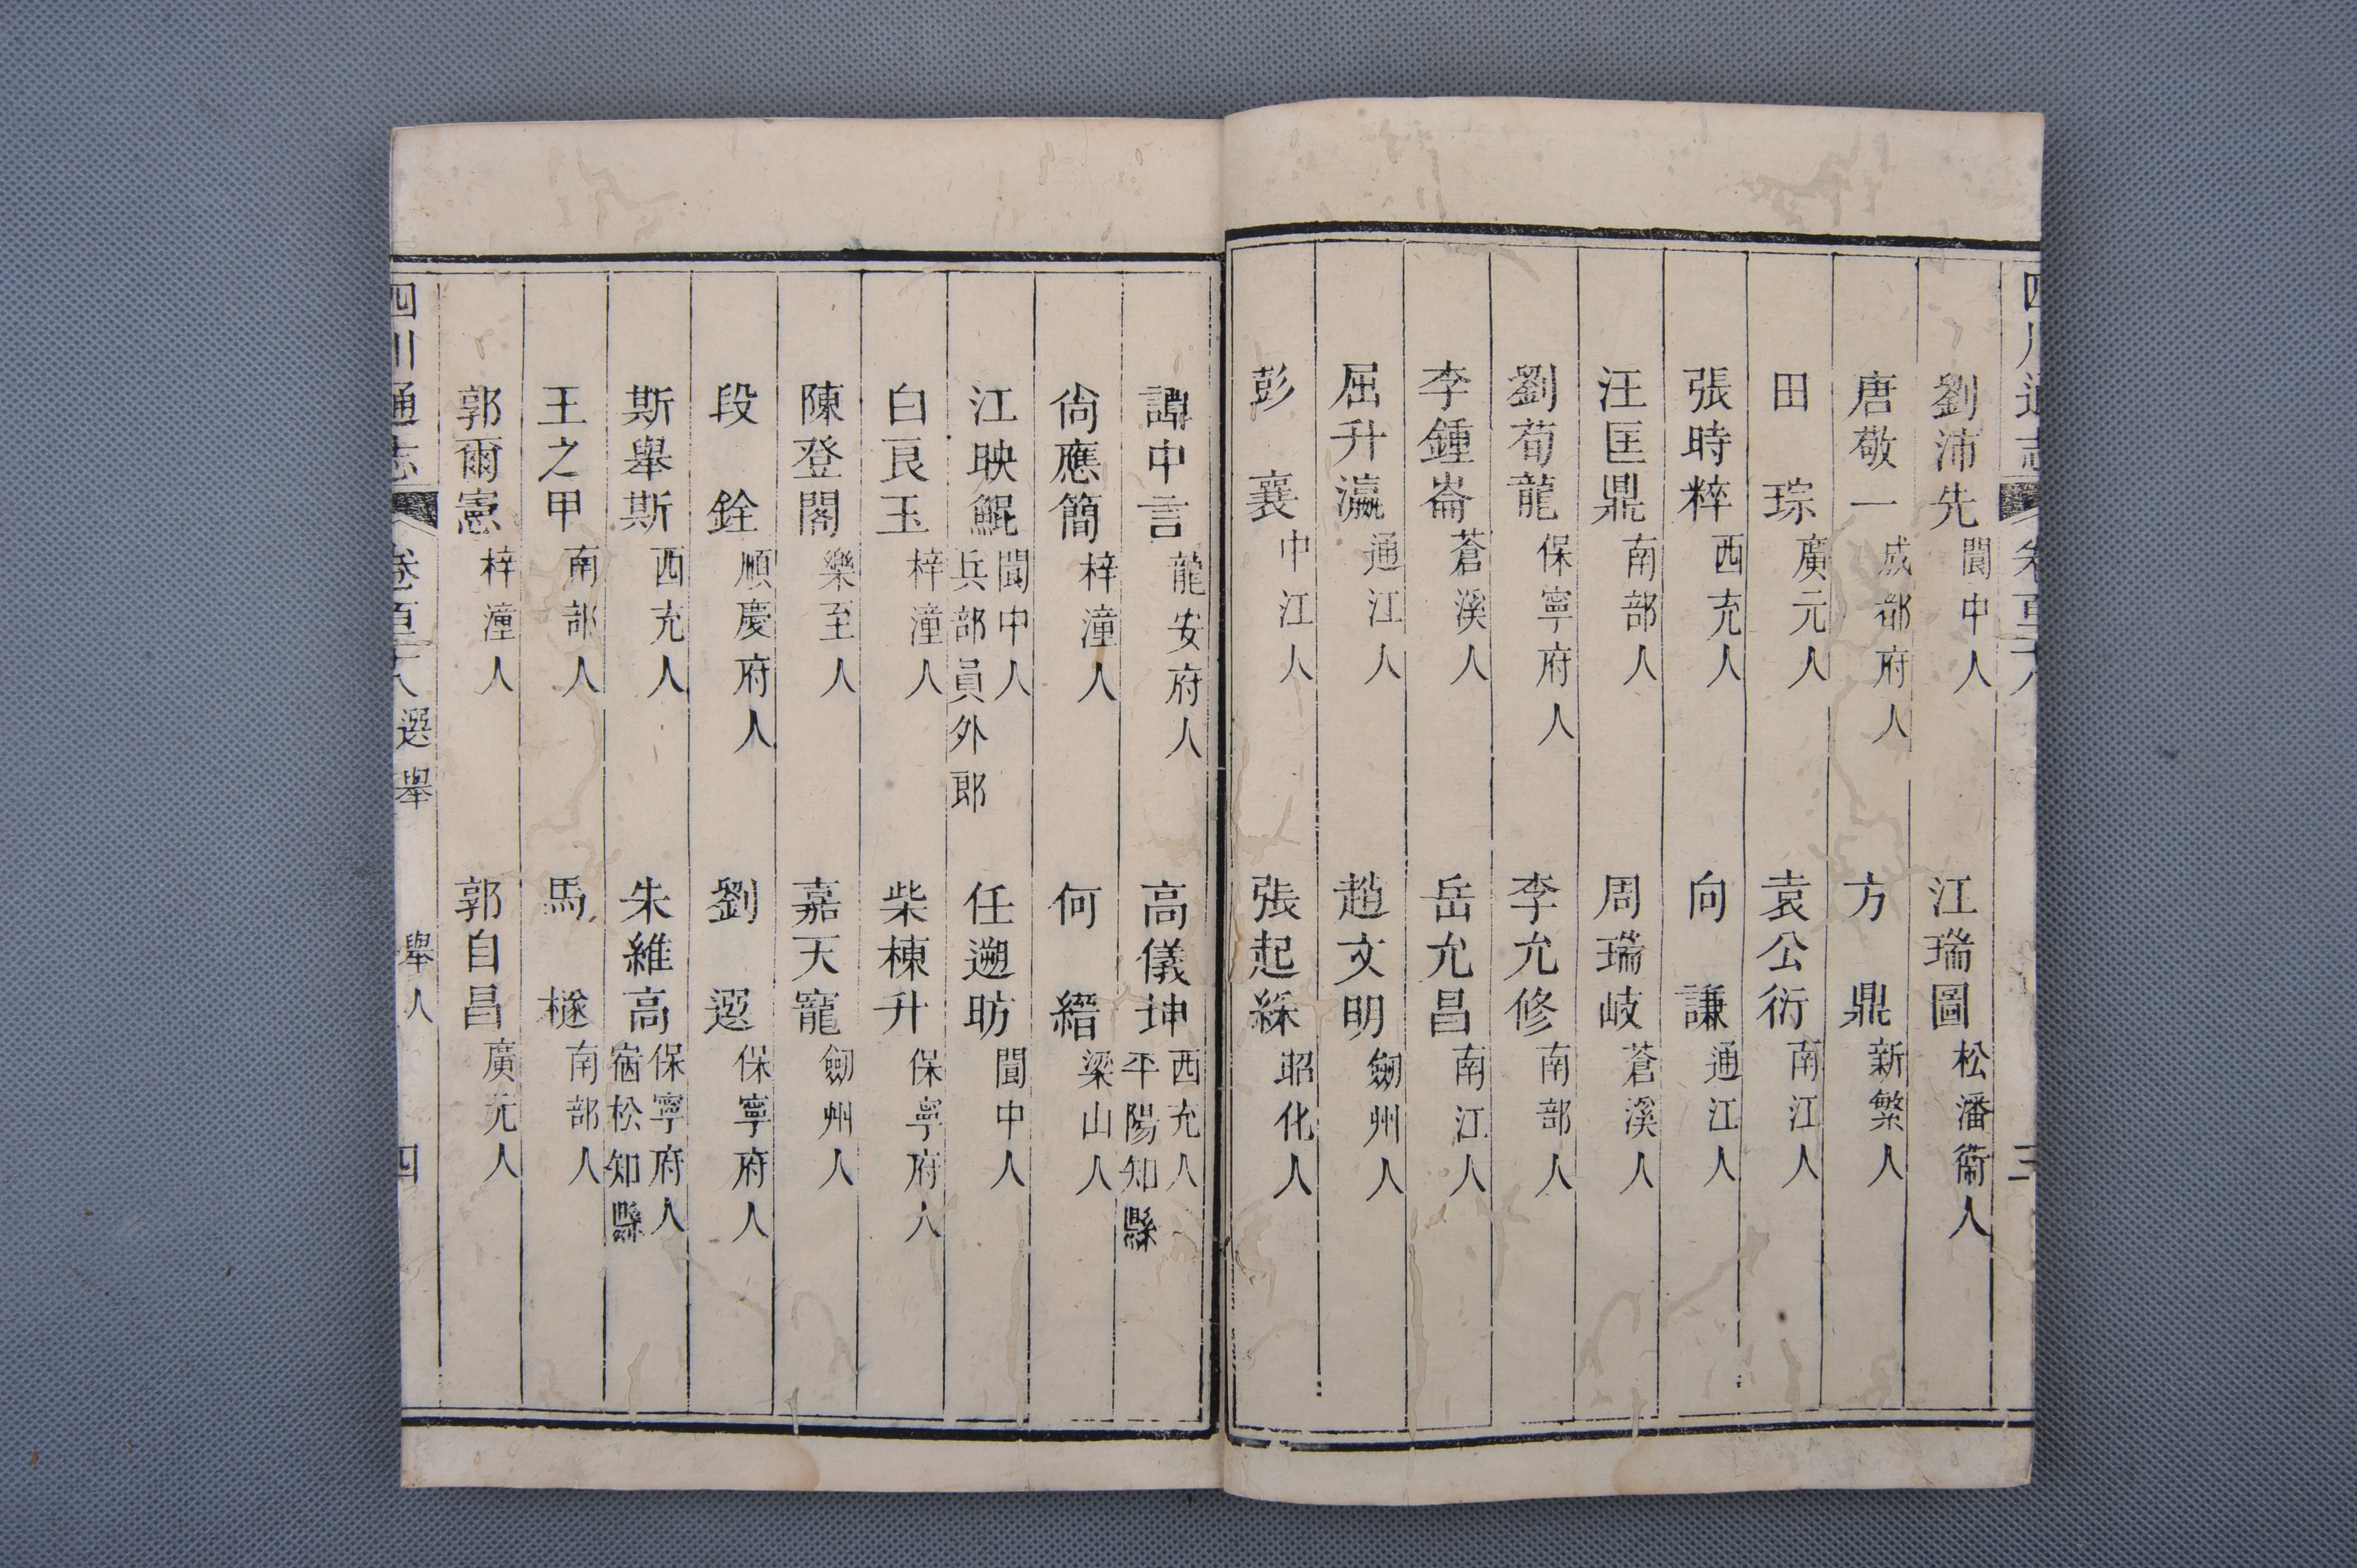 四川通志 卷百二十八 三
劉沛先 閬中人 江瑞圖 松潘衞人
唐敬一 成都府人 方鼎 新繁人
田琮 廣元人 袁公衍 南江人
張時粹 西充人 向謙 通江人
汪匡鼎 南部人 周瑞岐 蒼溪人
劉荀龍 保寧府人 李允修 南部人
李鍾崙 蒼溪人 岳允昌 南江人
屈升瀛 通江人 趙文明 劒州人
彭襄 中江人 張起綵 昭化人
譚中言 龍安府人 高儀坤 西充人 平陽知縣
尙應簡 梓潼人 何縉 梁山人
江映鯤 閬中人 兵部員外郎 任遡昉 閬中人
白艮玉 梓潼人 柴棟升 保寧府人
陳登閣 樂至人 嘉天寵 劒州人
段銓 順慶府人 劉選 保寧府人
斯舉斯 西充人 朱維高 保寧府人 宿松知縣
王之甲 南部人 馬檖 南部人
郭爾憲 梓潼人 郭自昌 廣元人
四川通志 卷百二十八 選舉 舉人 四